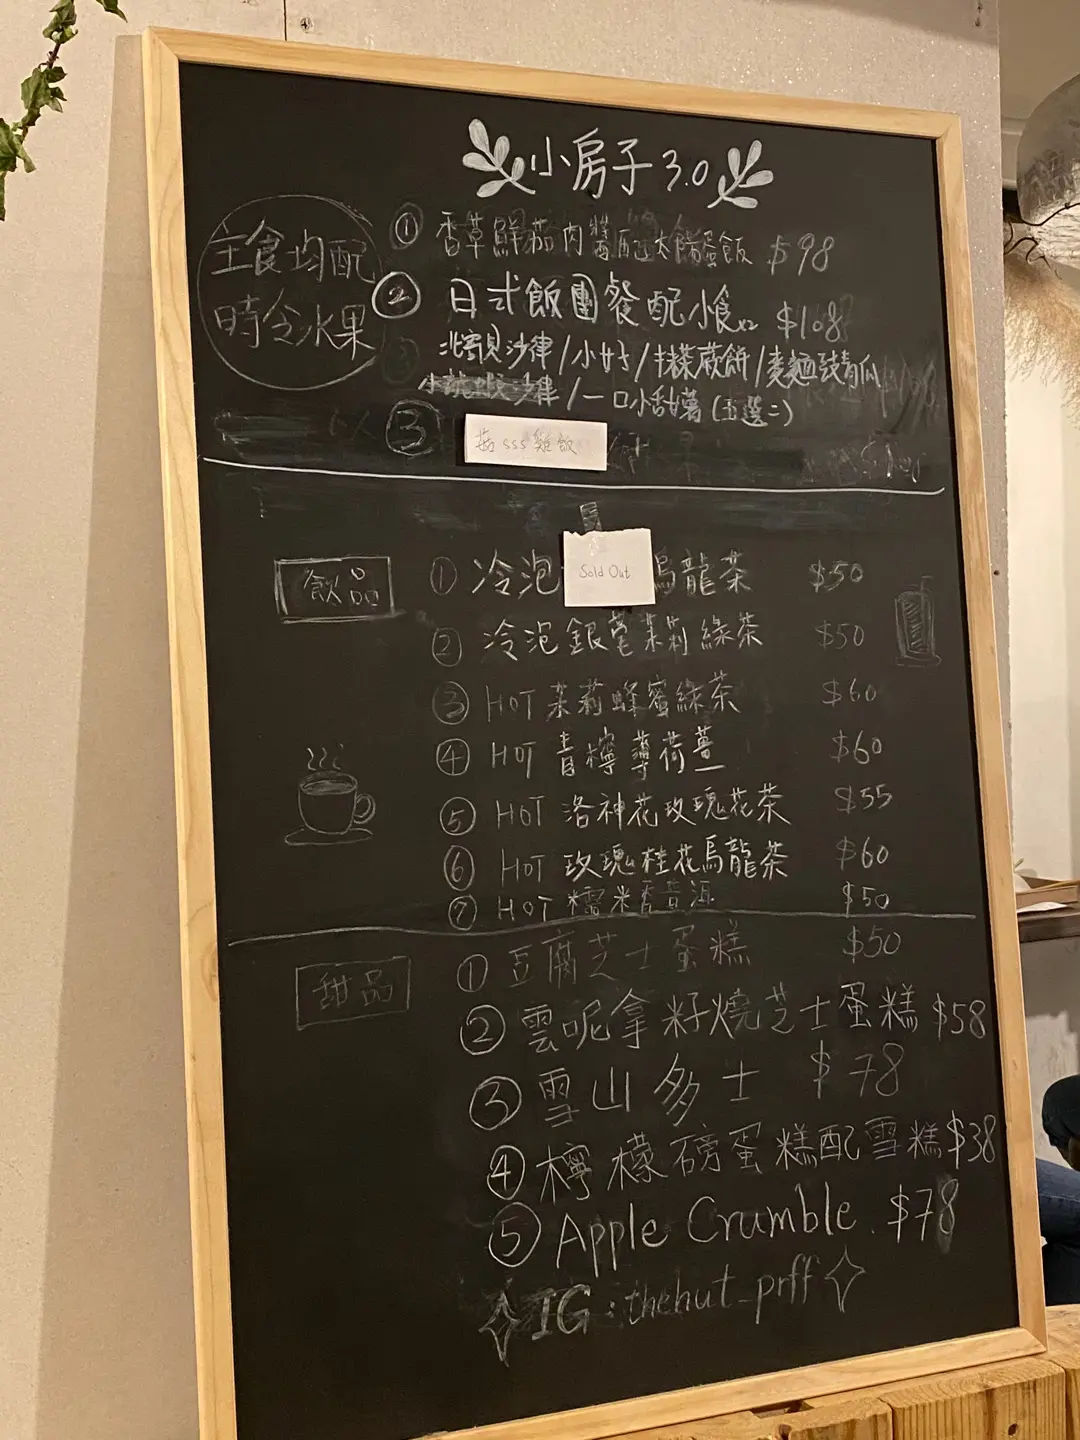 小房子 3.0
主食均配
時令水果
① 香草鮮茄肉醬配太陽蛋飯 $98
② 日式飯團餐配小食x2 $108
沙律/小甘/抹茶蕨餅/青瓜
沙律/一口小甜薯(五選二)
③ 菇sss雞飯
飲品
① 冷泡 烏龍茶 $50
Sold Out
② 冷泡銀毫茉莉綠茶 $50
③ HOT 茉莉蜂蜜綠茶 $60
④ HOT 青檸薄荷薑 $60
⑤ HOT 洛神花玫瑰花茶 $55
⑥ HOT 玫瑰桂花烏龍茶 $60
⑦ HOT 糯米香普洱 $50
甜品
① 豆腐芝士蛋糕 $50
② 雲呢拿籽燒芝士蛋糕 $58
③ 雪山多士 $78
④ 檸檬磅蛋糕配雪糕 $38
⑤ Apple Crumble. $78
IG:thehut_prff